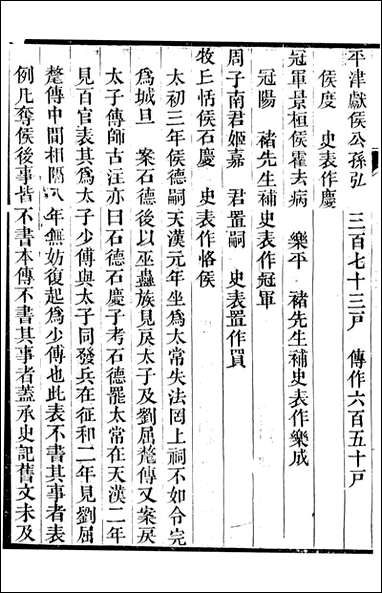 平津獻侯公孫弘　三百七十三戸　傳作六百五十戸
侯度　史表作慶
冠軍景桓侯霍去病　樂平　褚先生補史表作樂成
冠陽　褚先生補史表作冠軍
周子南君姬嘉　君置嗣　史表置作買
牧丘恬侯石慶　史表作恪侯
太初三年侯德嗣天漢元年坐為太常失法罔上祠不如令完
為城旦　案石德後以巫蠱族見戾太子及劉屈氂傳又案戾
太子傳師古注亦曰石德石慶子考石德罷太常在天漢二年
見百官表其為太子少傅與太子同發兵在征和二年見劉屈
氂傳中間相隔八年無妨復起為少傅也此表不書其事者表
例凡奪侯後事皆不書本傳不書其事者蓋承史記舊文未及